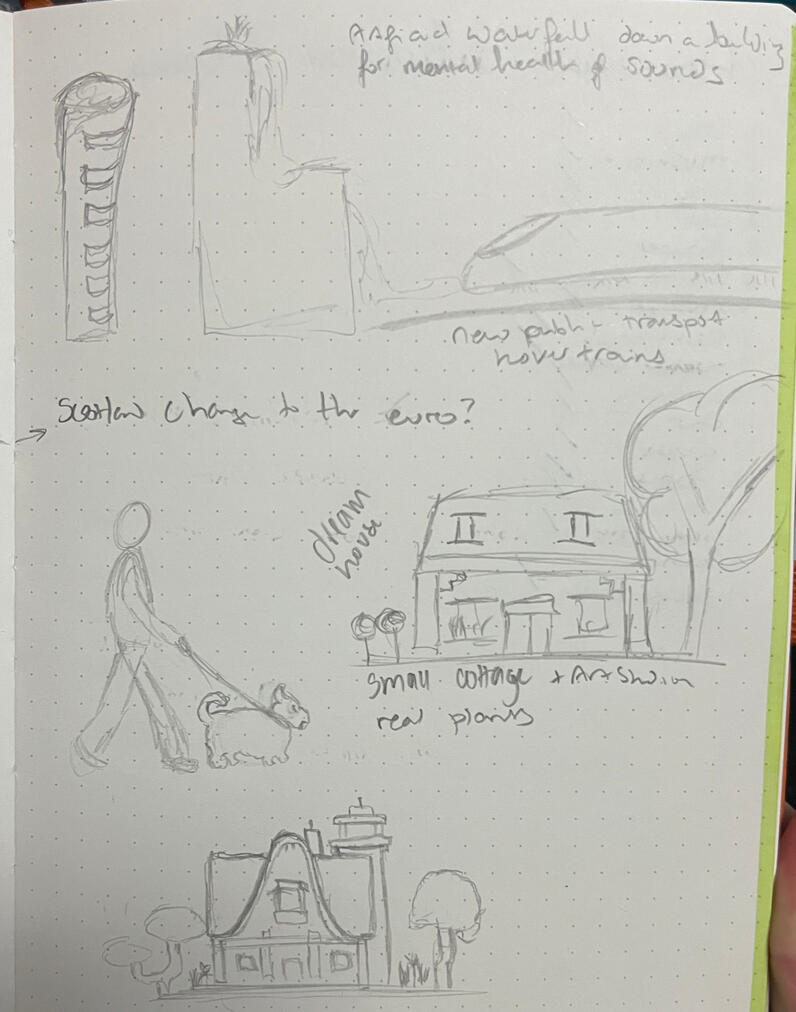 waterfall down a building
for mental health & sounds
new public transport
hover trains
Scotland change to the euro?
dream
house
small cottage + Art Studio
real plants